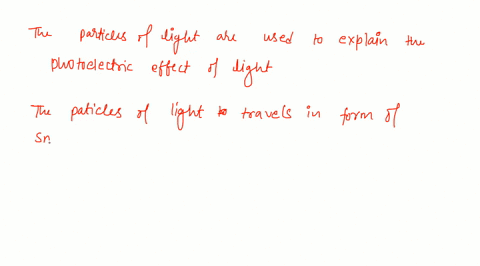 The particles of light are used to explain the
photoelectric effect of light
The paticles of light to travels in form of
Sm